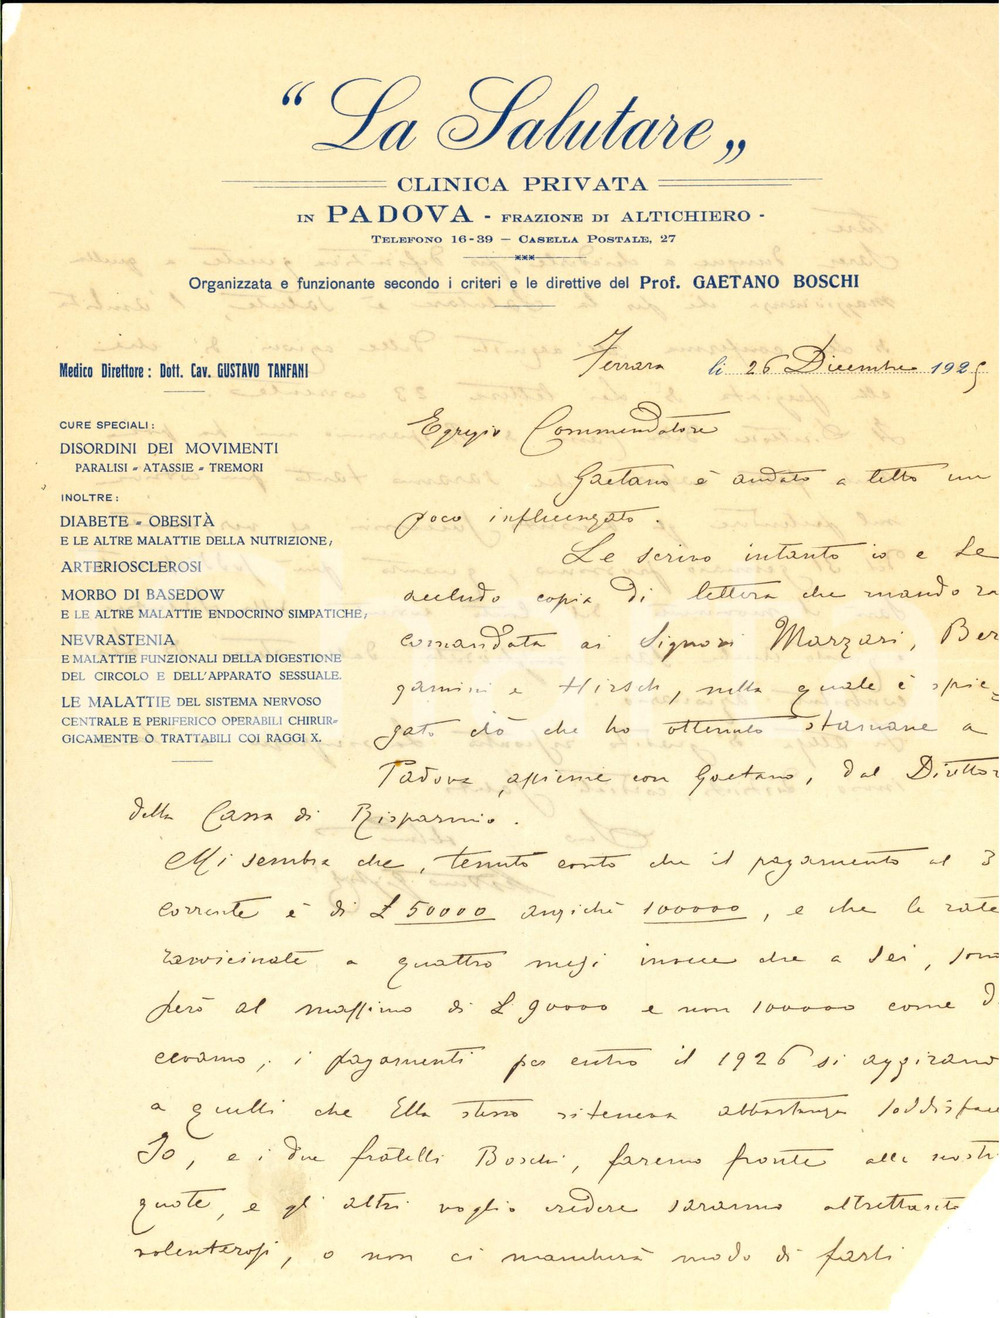 “La Salutare„
CLINICA PRIVATA
IN PADOVA - FRAZIONE DI ALTICHIERO -
TELEFONO 16-39 — CASELLA POSTALE, 27
Organizzata e funzionante secondo i criteri e le direttive del Prof. GAETANO BOSCHI
Ferrara li 26 Dicembre 1925
Medico Direttore: Dott. Cav. GUSTAVO TANFANI
CURE SPECIALI:
DISORDINI DEI MOVIMENTI
PARALISI - ATASSIE - TREMORI
INOLTRE:
DIABETE - OBESITÀ
E LE ALTRE MALATTIE DELLA NUTRIZIONE;
ARTERIOSCLEROSI
MORBO DI BASEDOW
E LE ALTRE MALATTIE ENDOCRINO SIMPATICHE;
NEVRASTENIA
E MALATTIE FUNZIONALI DELLA DIGESTIONE
DEL CIRCOLO E DELL'APPARATO SESSUALE.
LE MALATTIE DEL SISTEMA NERVOSO
CENTRALE E PERIFERICO OPERABILI CHIRUR-
GICAMENTE O TRATTABILI COI RAGGI X.
Egregio Commendatore
Gaetano è andato a letto un
poco influenzato.
Le scrivo intanto io e Le
accludo copia di lettera che mando ra
comandata ai Signori Marzari, Ber
gamini e Hirsch, nella quale è spie=
gato ciò che ho ottenuto stamane a
Padova, assieme con Gaetano, dal Direttor
della Cassa di Risparmio.
Mi sembra che, tenuto conto che il pagamento al 3
corrente è di £ 50000 anziché 100000, e che le rate
ravvicinate a quattro mesi invece che a sei, sono
però al massimo di £ 90000 e non 100000 come di
cevamo, i pagamenti per entro il 1926 si aggirano
a quelli che Ella stesso riteneva abbastanza soddisface
Io, e i due fratelli Boschi, faremo fronte alle nostre
quote, e gli altri voglio credere saranno altrettanto
volenterosi, o non ci mancherà modo di farli